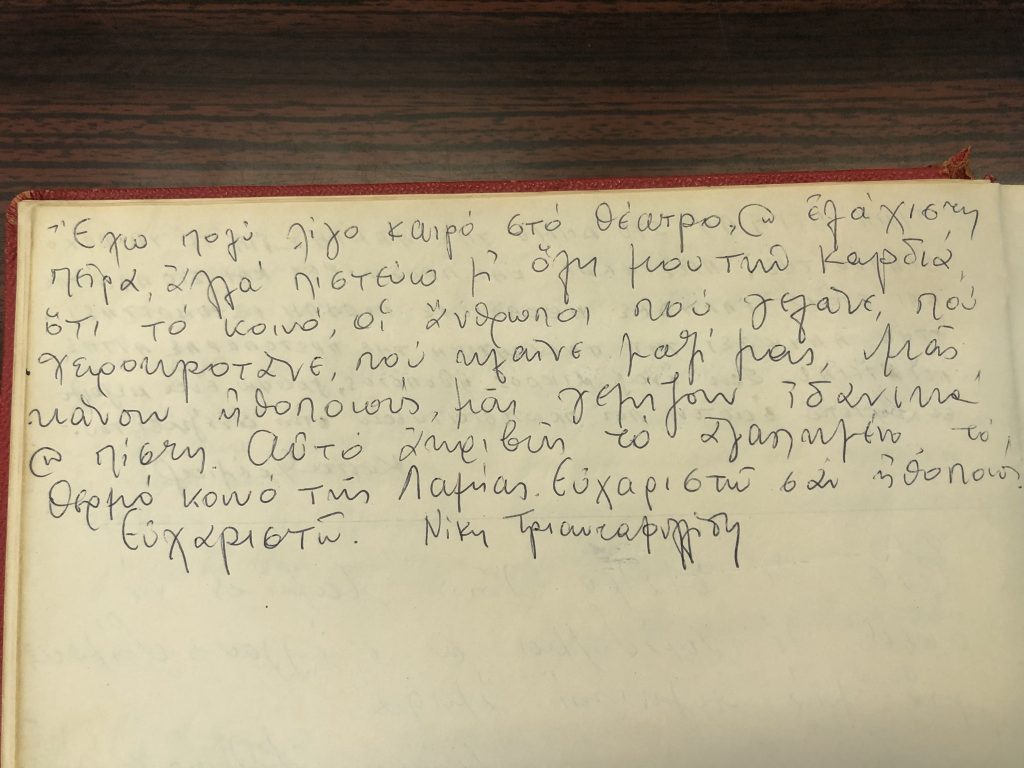 Ἔχω πολύ λίγο καιρό στό θέατρο, κ ἐλάχιστη
πεῖρα, ἀλλά πιστεύω μ' ὅλη μου τήν καρδιά,
ὅτι τό κοινό, οἱ ἄνθρωποι πού γελᾶνε, πού
χειροκροτᾶνε, πού κλαῖνε μαζί μας, μᾶς
κάνουν ἠθοποιούς, μᾶς γεμίζουν ἰδανικά
κ πίστη. Αὐτό ἀκριβῶς τό ἀγαπημένο, τό
θερμό κοινό τῆς Λαμίας. Εὐχαριστῶ σάν ἠθοποιός.
Εὐχαριστῶ. Νίκη Τριανταφυλλίδη